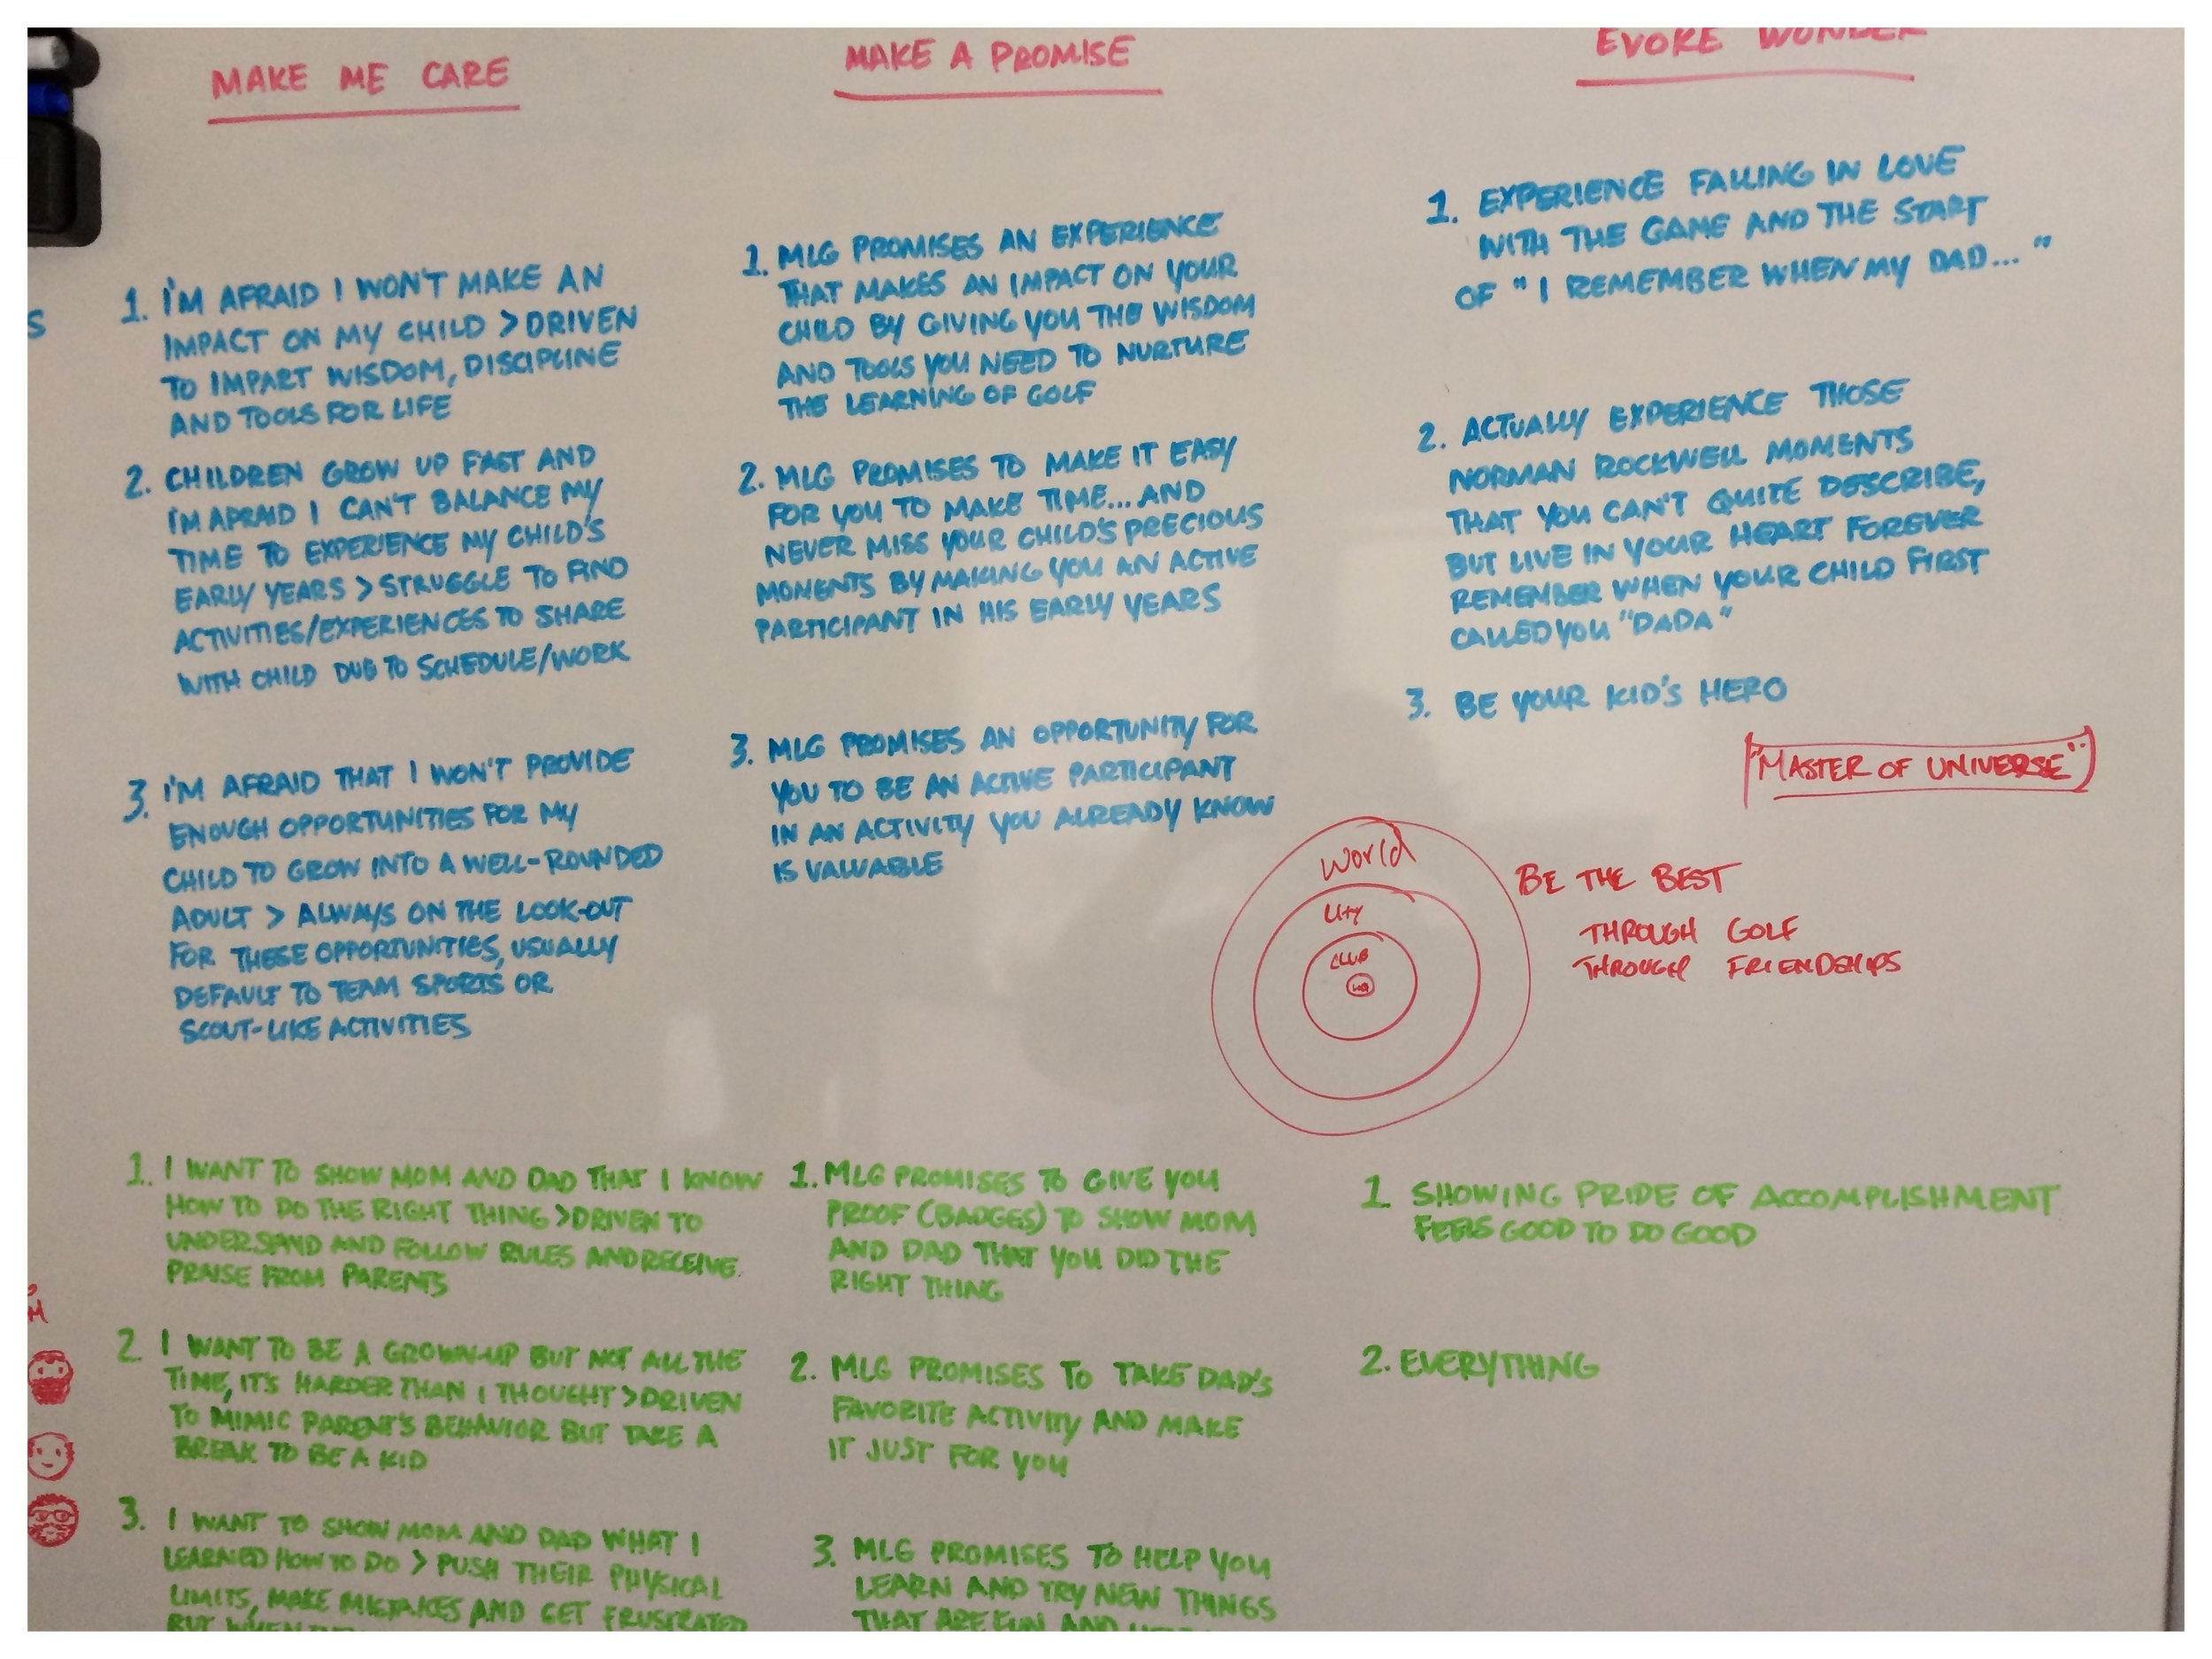 MAKE ME CARE
I'M AFRAID I WON'T MAKE AN
1. IMPACT ON MY CHILD > DRIVEN
TO IMPART WISDOM, DISCIPLINE
AND TOOLS FOR LIFE
2. CHILDREN GROW UP FAST AND
I'M AFRAID I CAN'T BALANCE MY
TIME TO EXPERIENCE MY CHILD'S
EARLY YEARS > STRUGGLE TO FIND
ACTIVITIES/EXPERIENCES TO SHARE
WITH CHILD DUE TO SCHEDULE/WORK
3. I'M AFRAID THAT I WON'T PROVIDE
ENOUGH OPPORTUNITIES FOR MY
CHILD TO GROW INTO A WELL-ROUNDED
ADULT > ALWAYS ON THE LOOK-OUT
FOR THESE OPPORTUNITIES, USUALLY
DEFAULT TO TEAM SPORTS OR
SCOUT-LIKE ACTIVITIES
MAKE A PROMISE
1. MLG PROMISES AN EXPERIENCE
THAT MAKES AN IMPACT ON YOUR
CHILD BY GIVING YOU THE WISDOM
AND TOOLS YOU NEED TO NURTURE
THE LEARNING OF GOLF
2. MLG PROMISES TO MAKE IT EASY
FOR YOU TO MAKE TIME... AND
NEVER MISS YOUR CHILD'S PRECIOUS
MOMENTS BY MAKING YOU AN ACTIVE
PARTICIPANT IN HIS EARLY YEARS
3. MLG PROMISES AN OPPORTUNITY FOR
YOU TO BE AN ACTIVE PARTICIPANT
IN AN ACTIVITY YOU ALREADY KNOW
IS VALUABLE
EVOKE WONDER
1. EXPERIENCE FALLING IN LOVE
WITH THE GAME AND THE START
OF "I REMEMBER WHEN MY DAD..."
2. ACTUALLY EXPERIENCE THOSE
NORMAN ROCKWELL MOMENTS
THAT YOU CAN'T QUITE DESCRIBE,
BUT LIVE IN YOUR HEART FOREVER
REMEMBER WHEN YOUR CHILD FIRST
CALLED YOU "DADA"
3. BE YOUR KID'S HERO
"MASTER OF UNIVERSE"
World
CLUB
BE THE BEST
THROUGH GOLF
THROUGH FRIENDSHIPS
1. I WANT TO SHOW MOM AND DAD THAT I KNOW
HOW TO DO THE RIGHT THING > DRIVEN TO
UNDERSAND AND FOLLOW RULES AND RECEIVE
PRAISE FROM PARENTS
2. I WANT TO BE A GROWN-UP BUT NOT ALL THE
TIME, IT'S HARDER THAN I THOUGHT > DRIVEN
TO MIMIC PARENT'S BEHAVIOR BUT TAKE A
BREAK TO BE A KID
3. I WANT TO SHOW MOM AND DAD WHAT I
LEARNED HOW TO DO > PUSH THEIR PHYSICAL
LIMITS, MAKE MISTAKES AND GET FRUSTRATED
BUT WHEN
1. MLG PROMISES TO GIVE YOU
PROOF (BADGES) TO SHOW MOM
AND DAD THAT YOU DID THE
RIGHT THING
2. MLG PROMISES TO TAKE DAD'S
FAVORITE ACTIVITY AND MAKE
IT JUST FOR YOU
3. MLG PROMISES TO HELP YOU
LEARN AND TRY NEW THINGS
THAT ARE FUN AND
1. SHOWING PRIDE OF ACCOMPLISHMENT
FEELS GOOD TO DO GOOD
2. EVERYTHING